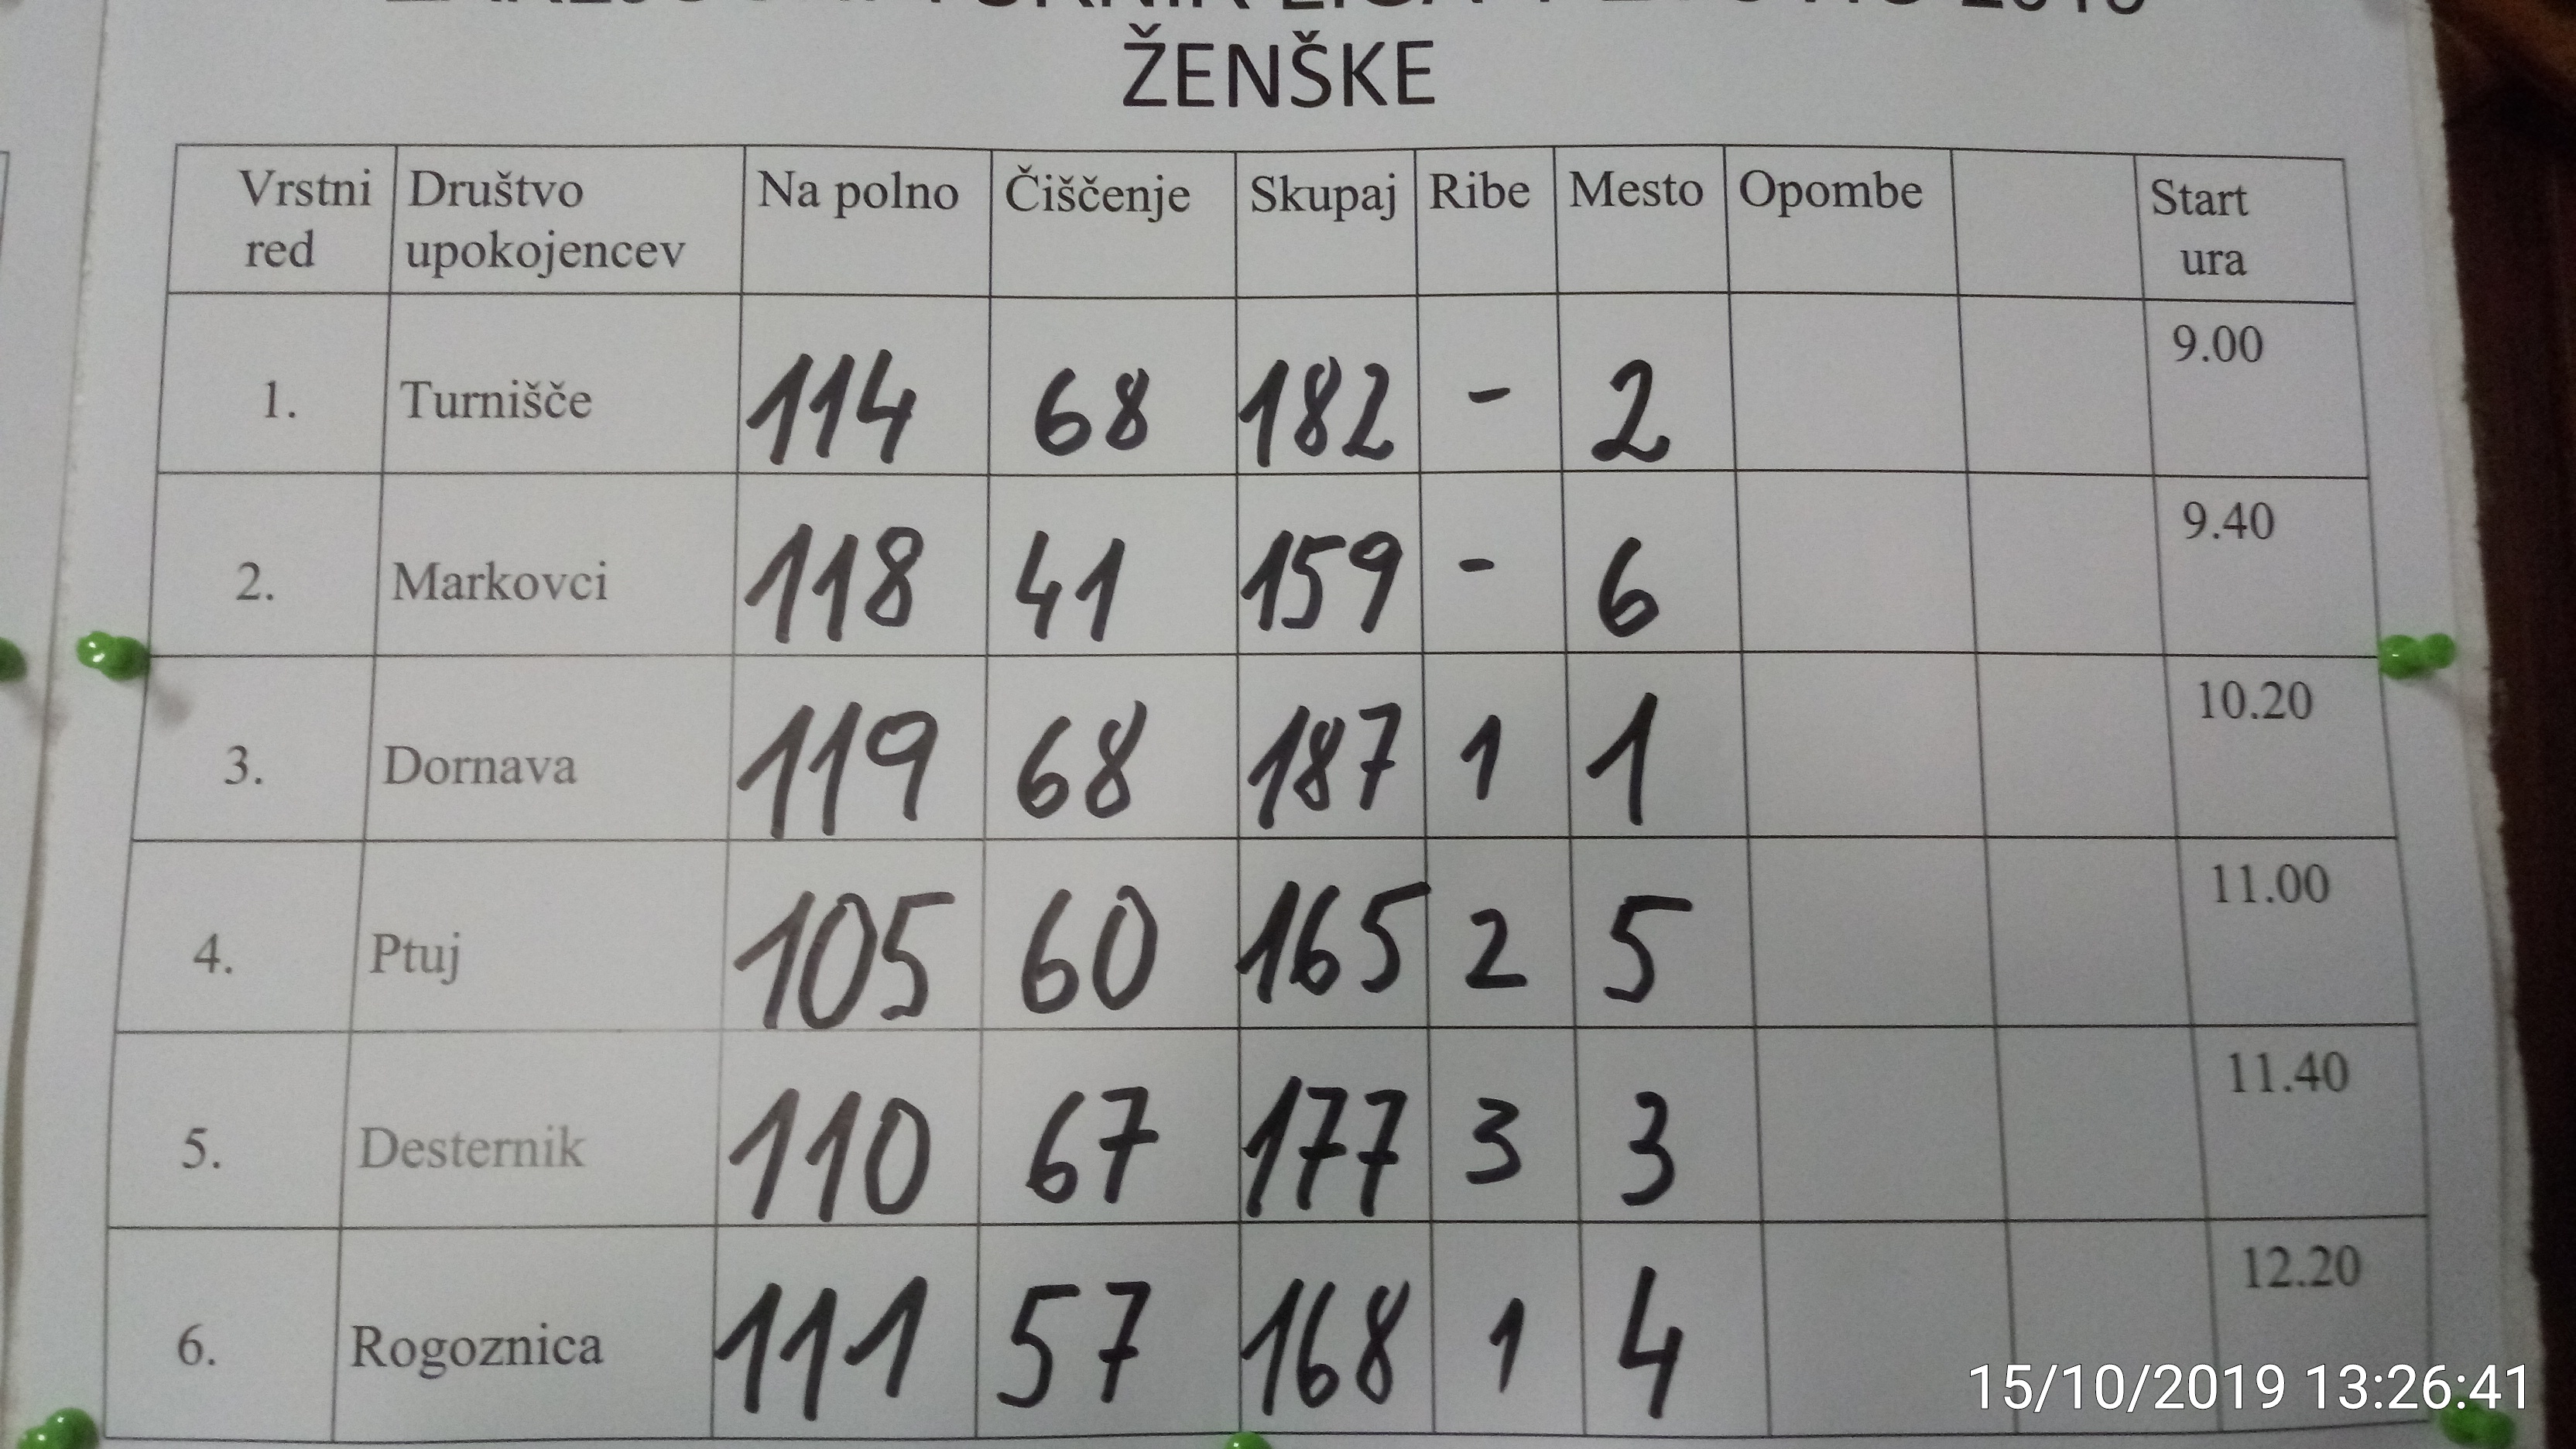 ŽENŠKE
Vrstni red Društvo upokojencev Na polno Čiščenje Skupaj Ribe Mesto Opombe Start ura
1. Turnišče 114 68 182 - 2 9.00
2. Markovci 118 41 159 - 6 9.40
3. Dornava 119 68 187 1 1 10.20
4. Ptuj 105 60 165 2 5 11.00
5. Desternik 110 67 177 3 3 11.40
6. Rogoznica 111 57 168 1 4 12.20
15/10/2019 13:26:41